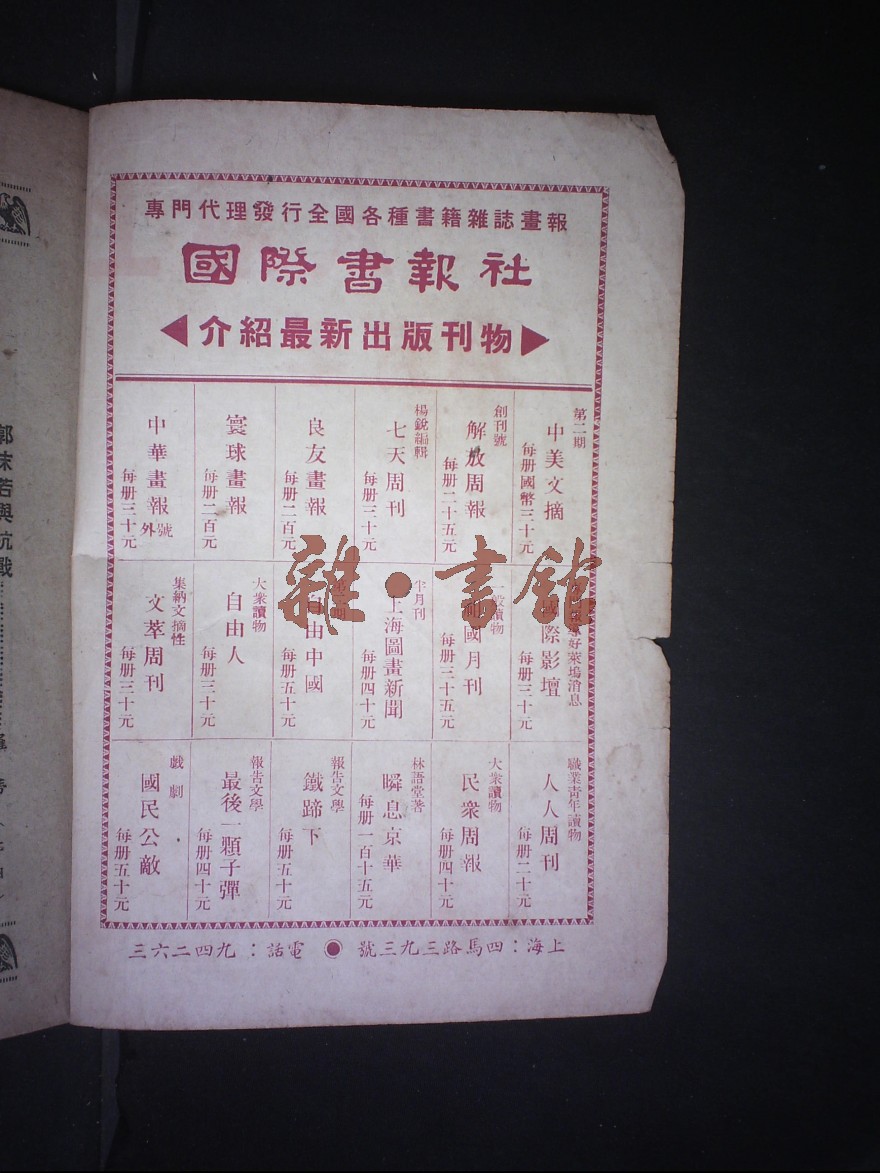 專門代理發行全國各種書籍雜誌畫報
國際書報社
介紹最新出版刊物
第二期
中美文摘
每册國幣三十元
創刊號
解放周報
每册二十五元
楊銳編輯
七天周刊
每册三十元
良友畫報
每册二百元
寰球畫報
每册二百元
中華畫報 號外
每册三十元
好萊塢消息
國際影壇
每册三十元
讀物
國月刊
每册三十五元
半月刊
上海圖畫新聞
每册四十元
自由中國
每册五十元
大衆讀物
自由人
每册三十元
集納文摘性
文萃周刊
每册三十元
職業青年讀物
人人周刊
每册二十元
大衆讀物
民衆周報
每册四十元
林語堂著
瞬息京華
每册一百十五元
報告文學
鐵蹄下
每册五十元
報告文學
最後一顆子彈
每册四十元
戲劇
國民公敵
每册五十元
上海：四馬路三九三號 ● 電話：九四二六三
雜·書館
郭沫若與抗戰